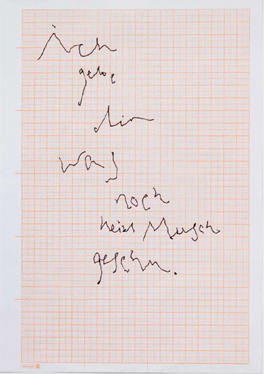 ich
gebe
dir
was
noch
kein Mensch
gesehn.